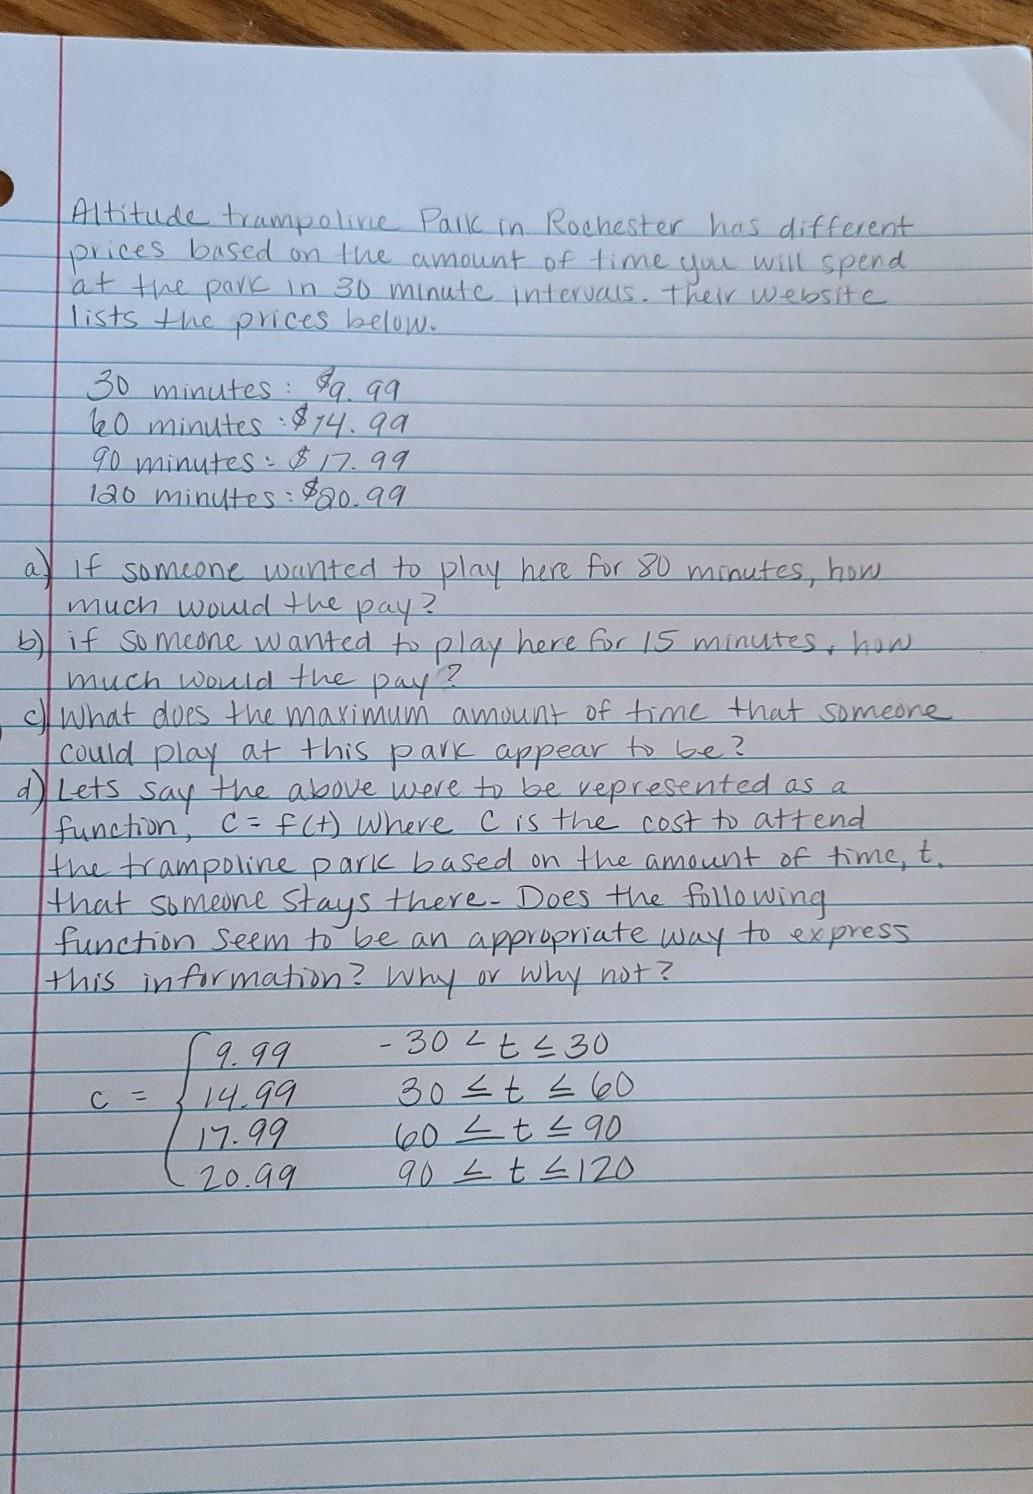 Altitude trampoline Park in Rochester has different
prices based on the amount of time you will spend
at the park in 30 minute intervals. Their website
lists the prices below.
30 minutes: $9.99
60 minutes: $14.99
90 minutes: $17.99
120 minutes: $20.99
a) If someone wanted to play here for 80 minutes, how
much would the pay?
b) if someone wanted to play here for 15 minutes, how
much would the pay?
c) What does the maximum amount of time that someone
could play at this park appear to be?
d) Lets say the above were to be represented as a
function, C = f(t) where C is the cost to attend
the trampoline park based on the amount of time, t,
that someone stays there. Does the following
function seem to be an appropriate way to express
this information? Why or why not?
C = { 9.99 -30 < t ≤ 30
14.99 30 ≤ t ≤ 60
17.99 60 ≤ t ≤ 90
20.99 90 ≤ t ≤ 120